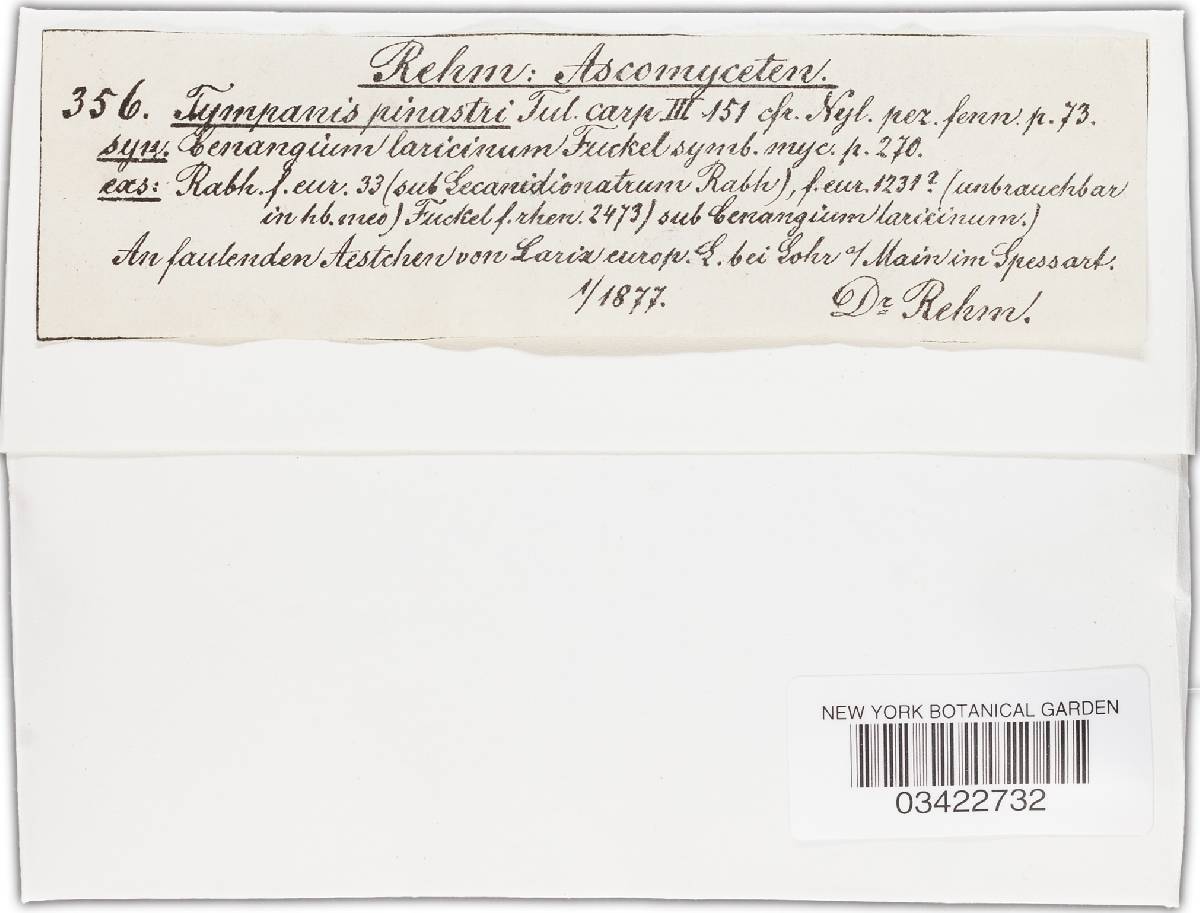 Rehm: Ascomyceten.
356. Tympanis pinastri Tul. carp III 151 cfr. Nyl. pez. fenn. p. 73.
syn: Cenangium laricinum Fuckel symb. myc. p. 270.
exs: Rabh. f. eur. 33 (sub Lecanidion atrum Rabh), f. eur. 1231? (unbrauchbar
in hb. meo) Fuckel f. rhen. 2473) sub Cenangium laricinum.)
An faulenden Aestchen von Larix europ. L. bei Lohr a/Main im Spessart.
1/1877. Dr Rehm.
NEW YORK BOTANICAL GARDEN
03422732